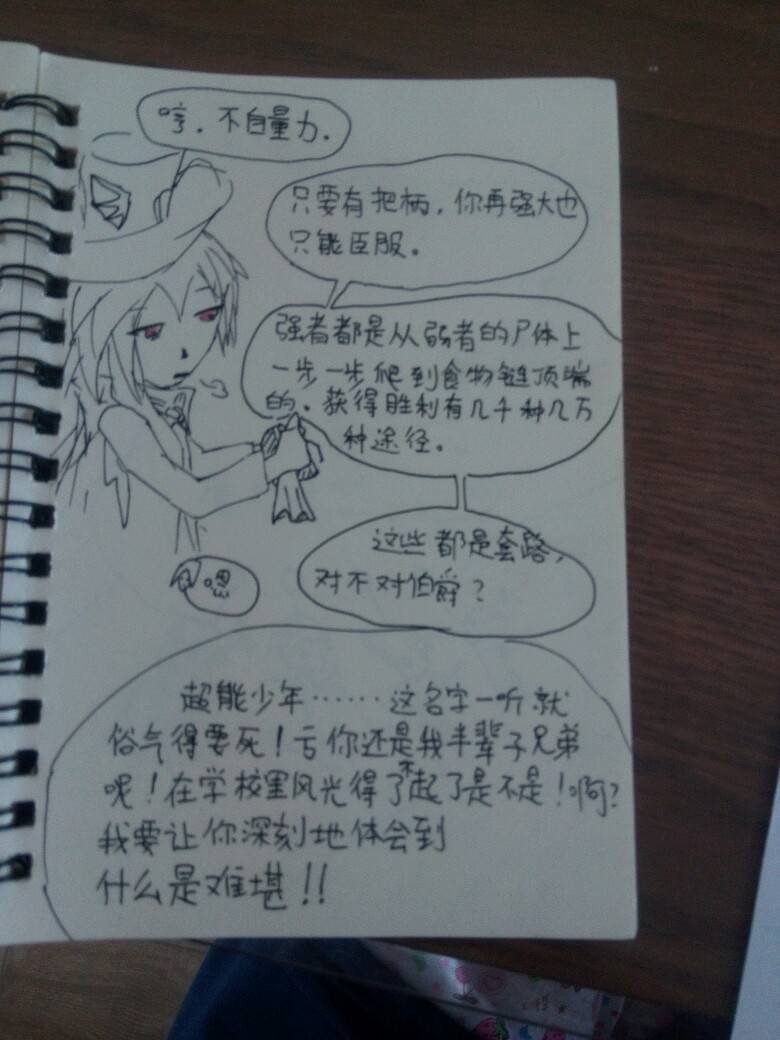 哼，不自量力．
只要有把柄，你再强大也
只能臣服。
强者都是从弱者的尸体上
一步一步爬到食物链顶端
的．获得胜利有几千种几万
种途径。
这些都是套路，
对不对伯爵？
嗯
超能少年……这名字一听就
俗气得要死！亏你还是我半辈子兄弟
呢！在学校里风光得了不起了是不是！啊？
我要让你深刻地体会到
什么是难堪！！